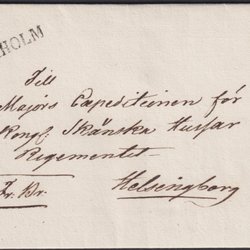 HOLM
Till
Majors Expeditionen för
Kongl. Skånska Husar
Regementet
Fr. Br.
Helsingborg